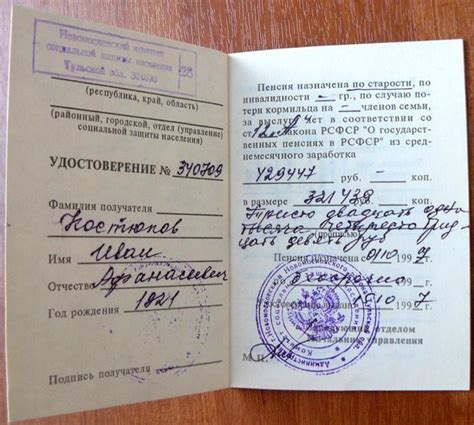 Новомосковский комитет
социальной защиты населения
Тульской обл. 301670
(республика, край, область)
(районный, городской, отдел (управление)
социальной защиты населения)
УДОСТОВЕРЕНИЕ № 340709
Фамилия получателя
Костюков
Имя Иван
Отчество Афанасьевич
Год рождения 1921
Подпись получателя
Пенсия назначена по старости, по
инвалидности — гр., по случаю по-
тери кормильца на — членов семьи,
за выслугу лет в соответствии со
ст. закона РСФСР "О государст-
венных пенсиях в РСФСР" из сред-
немесячного заработка
429447 руб. — коп.
в размере 321439
Триста двадцать одна
тысяча четыреста трид
цать девять руб
(прописью)
Пенсия назначена 10 1997
бессрочно
10 1997
Заведующий отделом
Начальник управления
М.П.